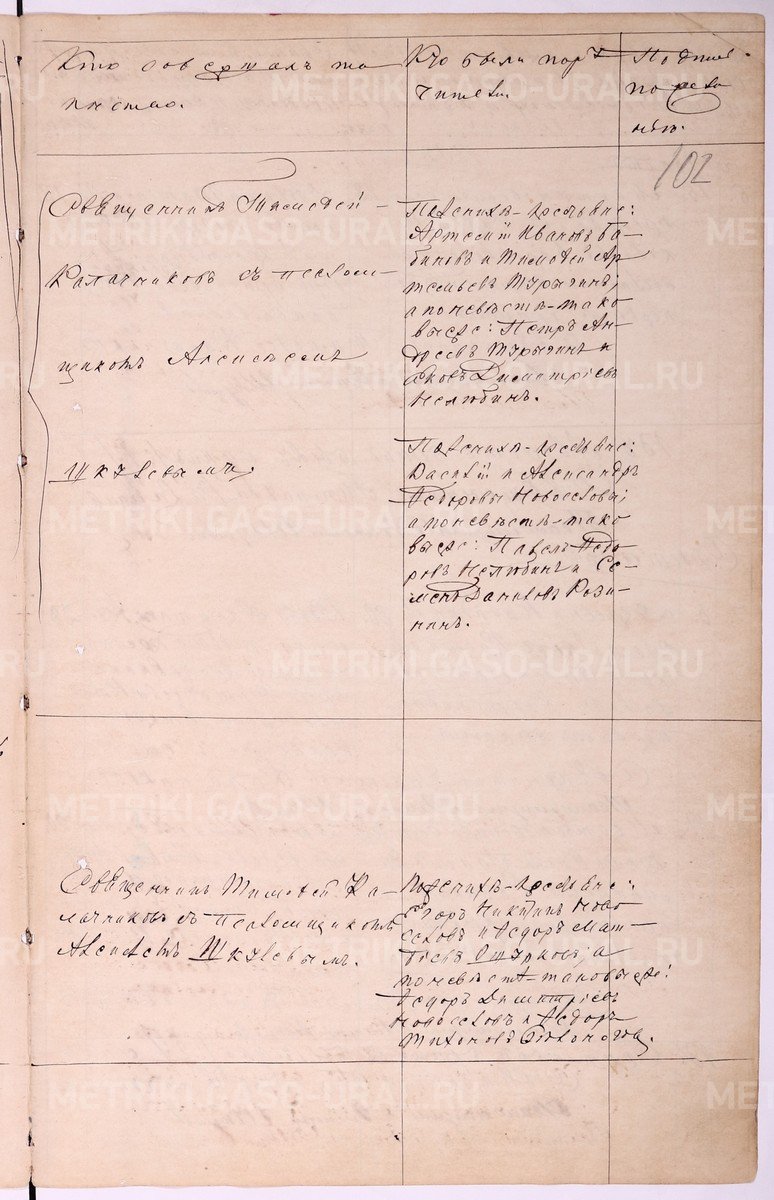 Кто совершалъ та
инство.
Кто были пору
чители.
По дпись
по жела
нію.
102
Священникъ Тимофей
Калачниковъ съ псалом-
щикомъ Алексѣемъ
Шкулевымъ.
По женихѣ - крестьяне:
Артемій Ивановъ Ба-
биновъ и Тимофей Ар
темьевъ Турыгинъ;
а по невѣстѣ - тако
выеже: Петръ Ан-
дреевъ Турыгинъ и
Яковъ Димитріевъ
Нелюбинъ.
По женихѣ - крестьяне:
Василій и Александръ
Ѳедоровы Новоселовы;
а по невѣстѣ - тако
выеже: Павелъ Ѳедо
ровъ Нелюбинъ и Се-
менъ Даниловъ Рози-
нинъ.
Священникъ Тимофей Ка-
лачниковъ съ псаломщикомъ
Алексѣемъ Шкулевымъ.
По женихѣ - крестьяне:
Егоръ Никитинъ Ново
селовъ и Ѳедоръ Мат-
веевъ а
по невѣстѣ - таковыеже:
Ѳедоръ Димитріевъ
Новоселовъ и Ѳедоръ
Тихоновъ
METRIKI.GASO-URAL.RU